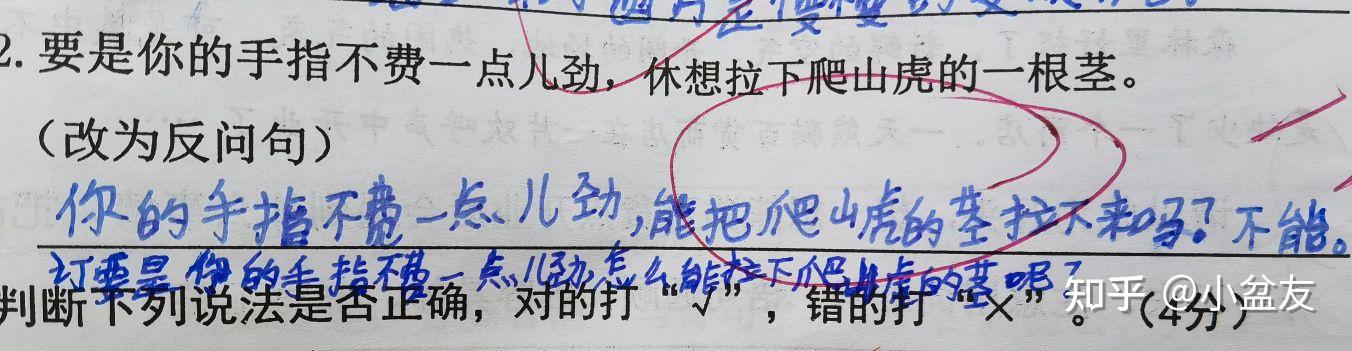 2. 要是你的手指不费一点儿劲，休想拉下爬山虎的一根茎。
（改为反问句）
你的手指不费一点儿劲，能把爬山虎的茎拉下来吗？不能。
订要是你的手指不费一点儿劲，怎么能拉下爬山虎的茎呢？
判断下列说法是否正确，对的打“√”，错的打“×”。（4分）
知乎 @小盆友